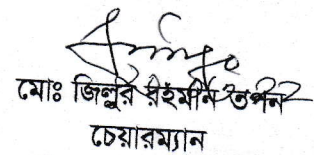 মোঃ জিল্লুর রহমান তপন
চেয়ারম্যান